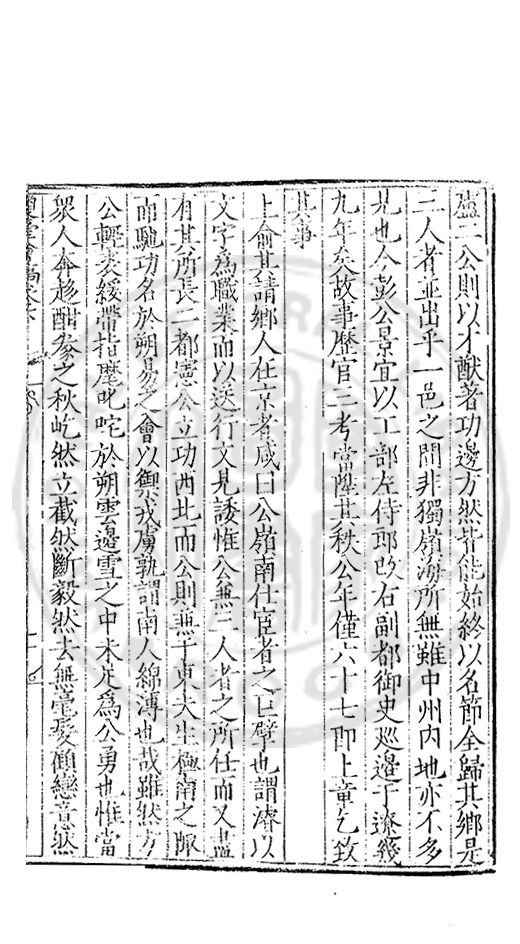 盧二公則以才猷著功邊方然皆能始終以名節全歸其鄉是
三人者並出乎一邑之間非獨嶺海所無雖中州內地亦不多
見也今彭公景宜以工部左侍郎改右副都御史巡邊于遼幾
九年矣故事歷官三考當陞其秩公年僅六十七即上章乞致
其事
上俞其請鄉人在京者咸曰公嶺南仕宦者之巨擘也謂濬以
文字為職業而以送行文見諉惟公兼三人者之所仕而又盡
有其所長二都憲公立功西北而公則兼于東夫生極南之陬
而馳功名於朔易之會以禦戎虜孰謂南人綿薄也哉雖然方
公輕裘緩帶指麾叱咤於朔雲邊雪之中未足為公勇也惟當
眾人奔趨酣豢之秋屹然立截然斷毅然去無毫髮顧戀意然